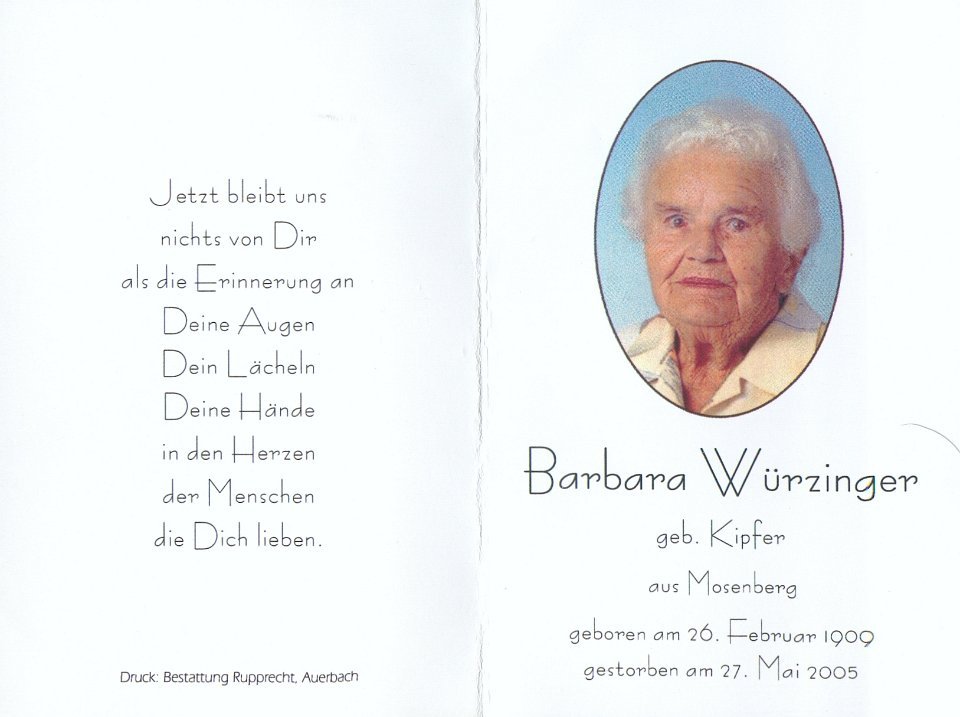 Jetzt bleibt uns
nichts von Dir
als die Erinnerung an
Deine Augen
Dein Lächeln
Deine Hände
in den Herzen
der Menschen
die Dich lieben.
Druck: Bestattung Rupprecht, Auerbach
Barbara Würzinger
geb. Kipfer
aus Mosenberg
geboren am 26. Februar 1909
gestorben am 27. Mai 2005